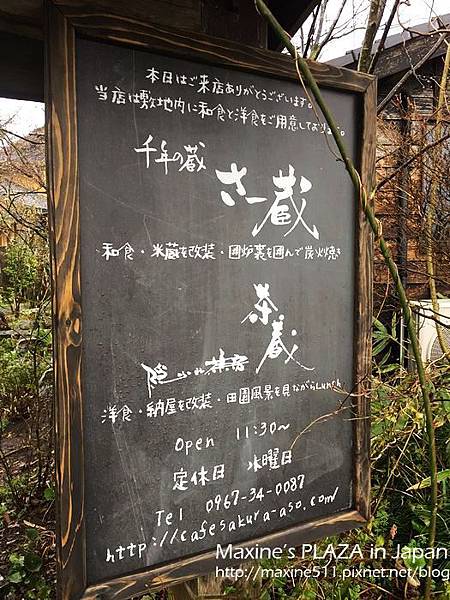 本日はご来店ありがとうございます。
当店は敷地内に和食と洋食をご用意しております。
千年の蔵
さー蔵
和食・米蔵を改装・囲炉裏を囲んで炭火焼き
茶蔵
隠れ茶房
洋食・納屋を改装・田園風景を見ながらLunch
Open 11:30〜
定休日 水曜日
Tel 0967-34-0087
http://cafesakura-aso.com/
Maxine's PLAZA in Japan
http://maxine511.pixnet.net/blog